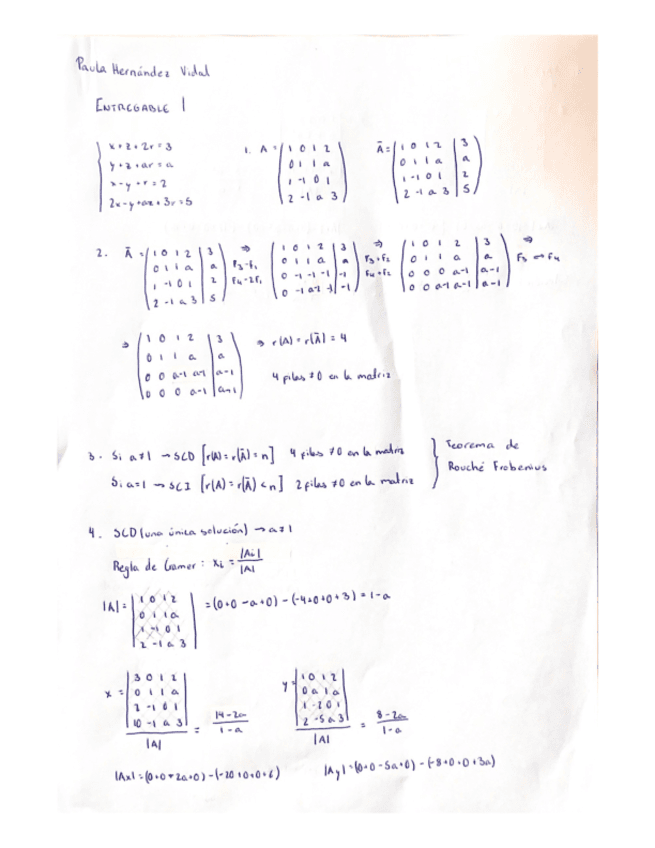 Paula Hernández Vidal
ENTREGABLE 1
x+z+2r=3
y+z+ar=a
x-y+r=2
2x-y+az+3r=5
1. A = (1 0 1 2
0 1 1 a
1 -1 0 1
2 -1 a 3)
Ā = (1 0 1 2 | 3
0 1 1 a | a
1 -1 0 1 | 2
2 -1 a 3 | 5)
2. Ā = (1 0 1 2 | 3
0 1 1 a | a
1 -1 0 1 | 2
2 -1 a 3 | 5)
⇒
F3-F1
F4-2F1
(1 0 1 2 | 3
0 1 1 a | a
0 -1 -1 -1 | -1
0 -1 a-2 -1 | -1)
⇒
F3+F2
F4+F2
(1 0 1 2 | 3
0 1 1 a | a
0 0 0 a-1 | a-1
0 0 a-1 a-1 | a-1)
⇒
F3 ↔ F4
⇒ (1 0 1 2 | 3
0 1 1 a | a
0 0 a-1 a-1 | a-1
0 0 0 a-1 | a-1)
⇒ r(A) = r(Ā) = 4
4 filas ≠0 en la matriz
3. Si a≠1 → SCD [r(A)=r(Ā)=n] 4 filas ≠0 en la matriz
Si a=1 → SCI [r(A)=r(Ā)<n] 2 filas ≠0 en la matriz
Teorema de
Rouché Frobenius
4. SCD (una única solución) → a≠1
Regla de Cramer: xi = |Ai| / |A|
|A| = |1 0 1 2
0 1 1 a
1 -1 0 1
2 -1 a 3| = (0+0-a+0)-(-4+0+0+3) = 1-a
x = |3 0 1 2
0 1 1 a
2 -1 0 1
10 -1 a 3|
/ |A| = 14-2a / 1-a
y = |1 0 1 2
0 a 1 a
1 -2 0 1
2 -5 a 3|
/ |A| = 8-2a / 1-a
|Ax| = (0+0+2a+0)-(-20+0+0+6)
|Ay| = (0+0-5a+0)-(-8+0+0+3a)